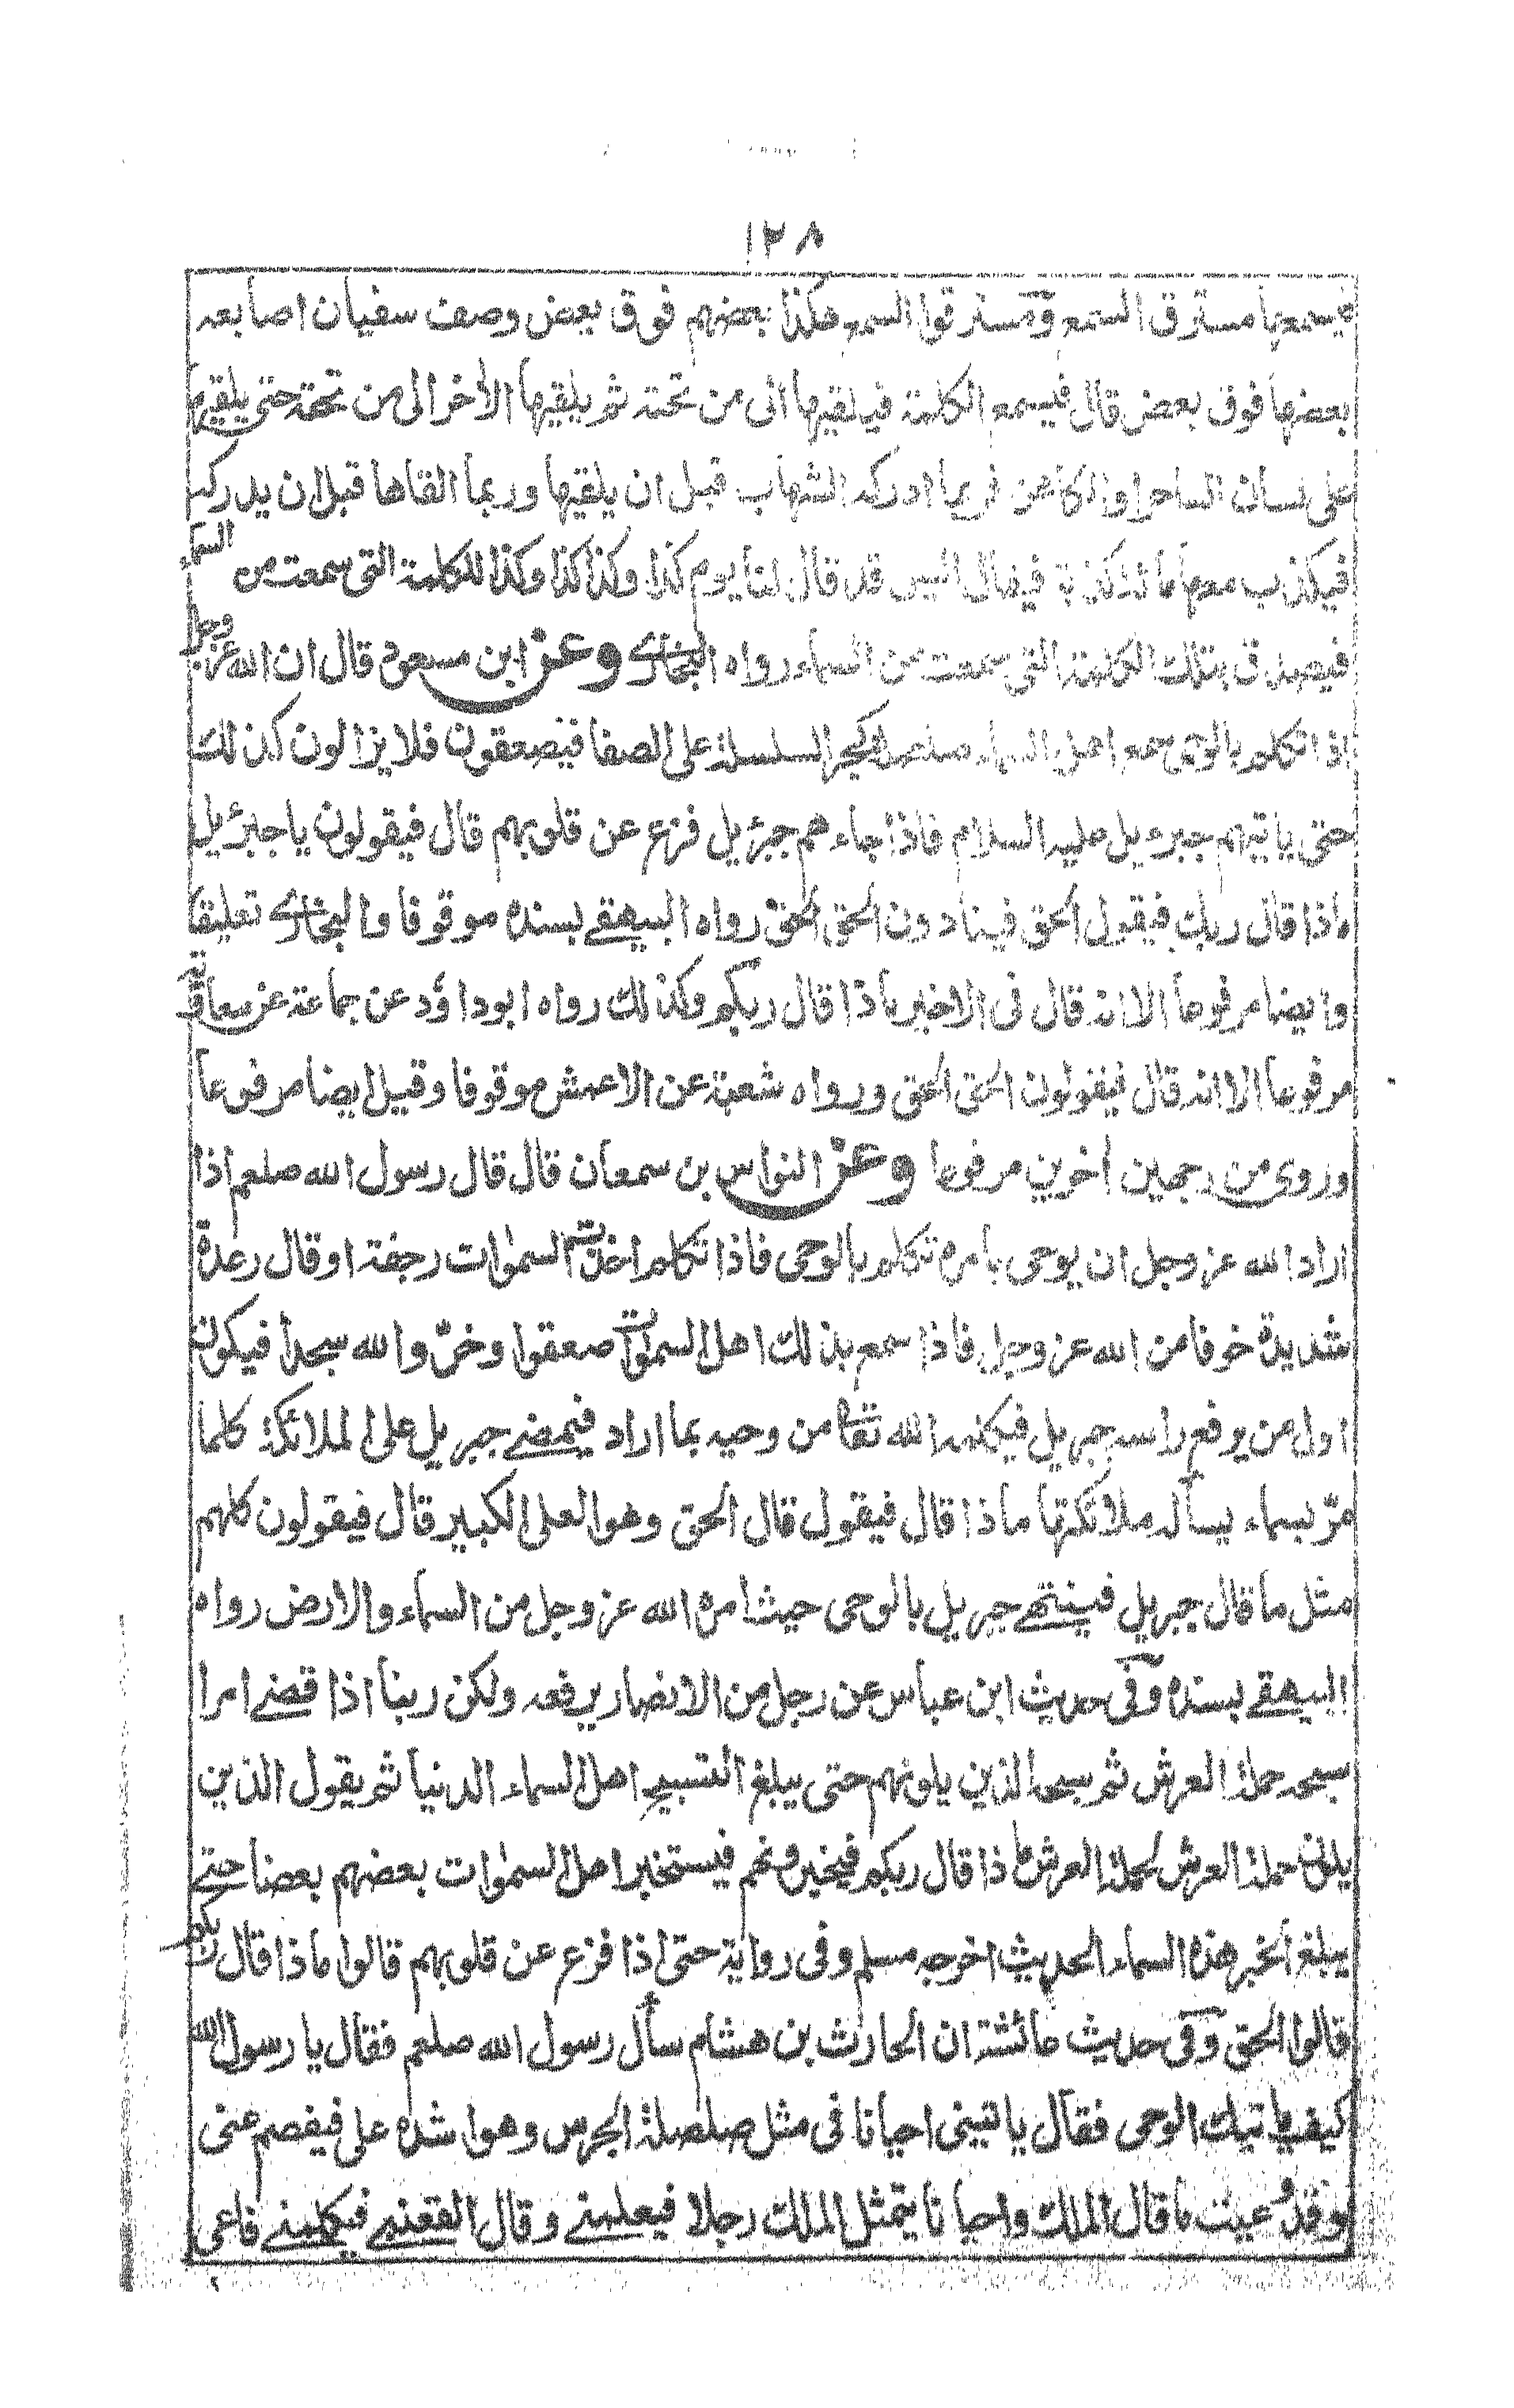 ١٢٨
فيسمعها مسترق السمع ومسترقوا السمع هكذا بعضهم فوق بعض وصف سفيان اصابعه
بعضها فوق بعض قال فيسمع الكلمة فيلقيها الى من تحته ثم يلقيها الأخر الى من تحته حتى يلقيها
على لسان الساحر او الكاهن فربما ادركه الشهاب قبل ان يلقيها وربما القاها قبل ان يدركه
فيكذب معها مائة كذبة فيقال اليس قد قال لنا يوم كذا وكذا كذا وكذا للكلمة التى سمعت من السماء
فيصدق بتلك الكلمة التى سمعت من السماء رواه البخارى وعن ابن مسعود قال ان الله عز وجل
اذا تكلم بالوحى سمع اهل السماء صلصلة كجر السلسلة على الصفا فيصعقون فلا يزالون كذلك
حتى ياتيهم جبرءيل عليه السلام فاذا جاءهم جبرئيل فزع عن قلوبهم قال فيقولون يا جبرئيل
ماذا قال ربك فيقول الحق فينادون الحق الحق رواه البيهقى بسنده موقوفا والبخارى تعليقا
وايضا مرفوعا الا انه قال فى الاخير ماذا قال ربكم وكذلك رواه ابوداؤد عن جماعة عن معاوية
مرفوعا الا انه قال فيقولون الحق الحق ورواه شعبة عن الاعمش موقوفا وقيل ايضا مرفوعا
وروى من وجهين أخرين مرفوعا وعن النواس بن سمعان قال قال رسول الله صلعم اذا
اراد الله عز وجل ان يوحى بأمره تكلم بالوحى فاذا تكلم اخذت السموات رجفة او قال رعدة
شديدة خوفا من الله عز وجل فاذا سمع بذلك اهل السموات صعقوا وخرّوا لله سجدا فيكون
اول من يرفع راسه جبريل فيكلمه الله تعا من وحيه بما اراد فيمضى جبريل على الملائكة كلما
مرّ بسماء يسأله ملائكتها ماذا قال فيقول قال الحق وهو العلى الكبير قال فيقولون كلهم
مثل ما قال جبريل فينتهى جبريل بالوحى حيث امره الله عز وجل من السماء والارض رواه
البيهقى بسنده وفى حديث ابن عباس عن رجل من الانصار يرفعه ولكن ربنا اذا قضى امرا
سبحه حملة العرش ثم سبحه الذين يلونهم حتى يبلغ التسبيح اهل السماء الدنيا ثم يقول الذين
يلون حملة العرش لحملة العرش ماذا قال ربكم فيخبرونهم فيستخبر اهل السموات بعضهم بعضا حتى
يبلغ الخبر هذه السماء الحديث اخرجه مسلم وفى رواية حتى اذا فزع عن قلوبهم قالوا ماذا قال ربكم
قالوا الحق وفى حديث عائشة ان الحارث بن هشام سأل رسول الله صلعم فقال يا رسول الله
كيف ياتيك الوحى فقال ياتينى احيانا فى مثل صلصلة الجرس وهو اشده على فيفصم عنى
وقد وعيت ما قال الملك واحيانا يتمثل الملك رجلا فيعلمنى وقال القعنبى فيكلمنى فاعى